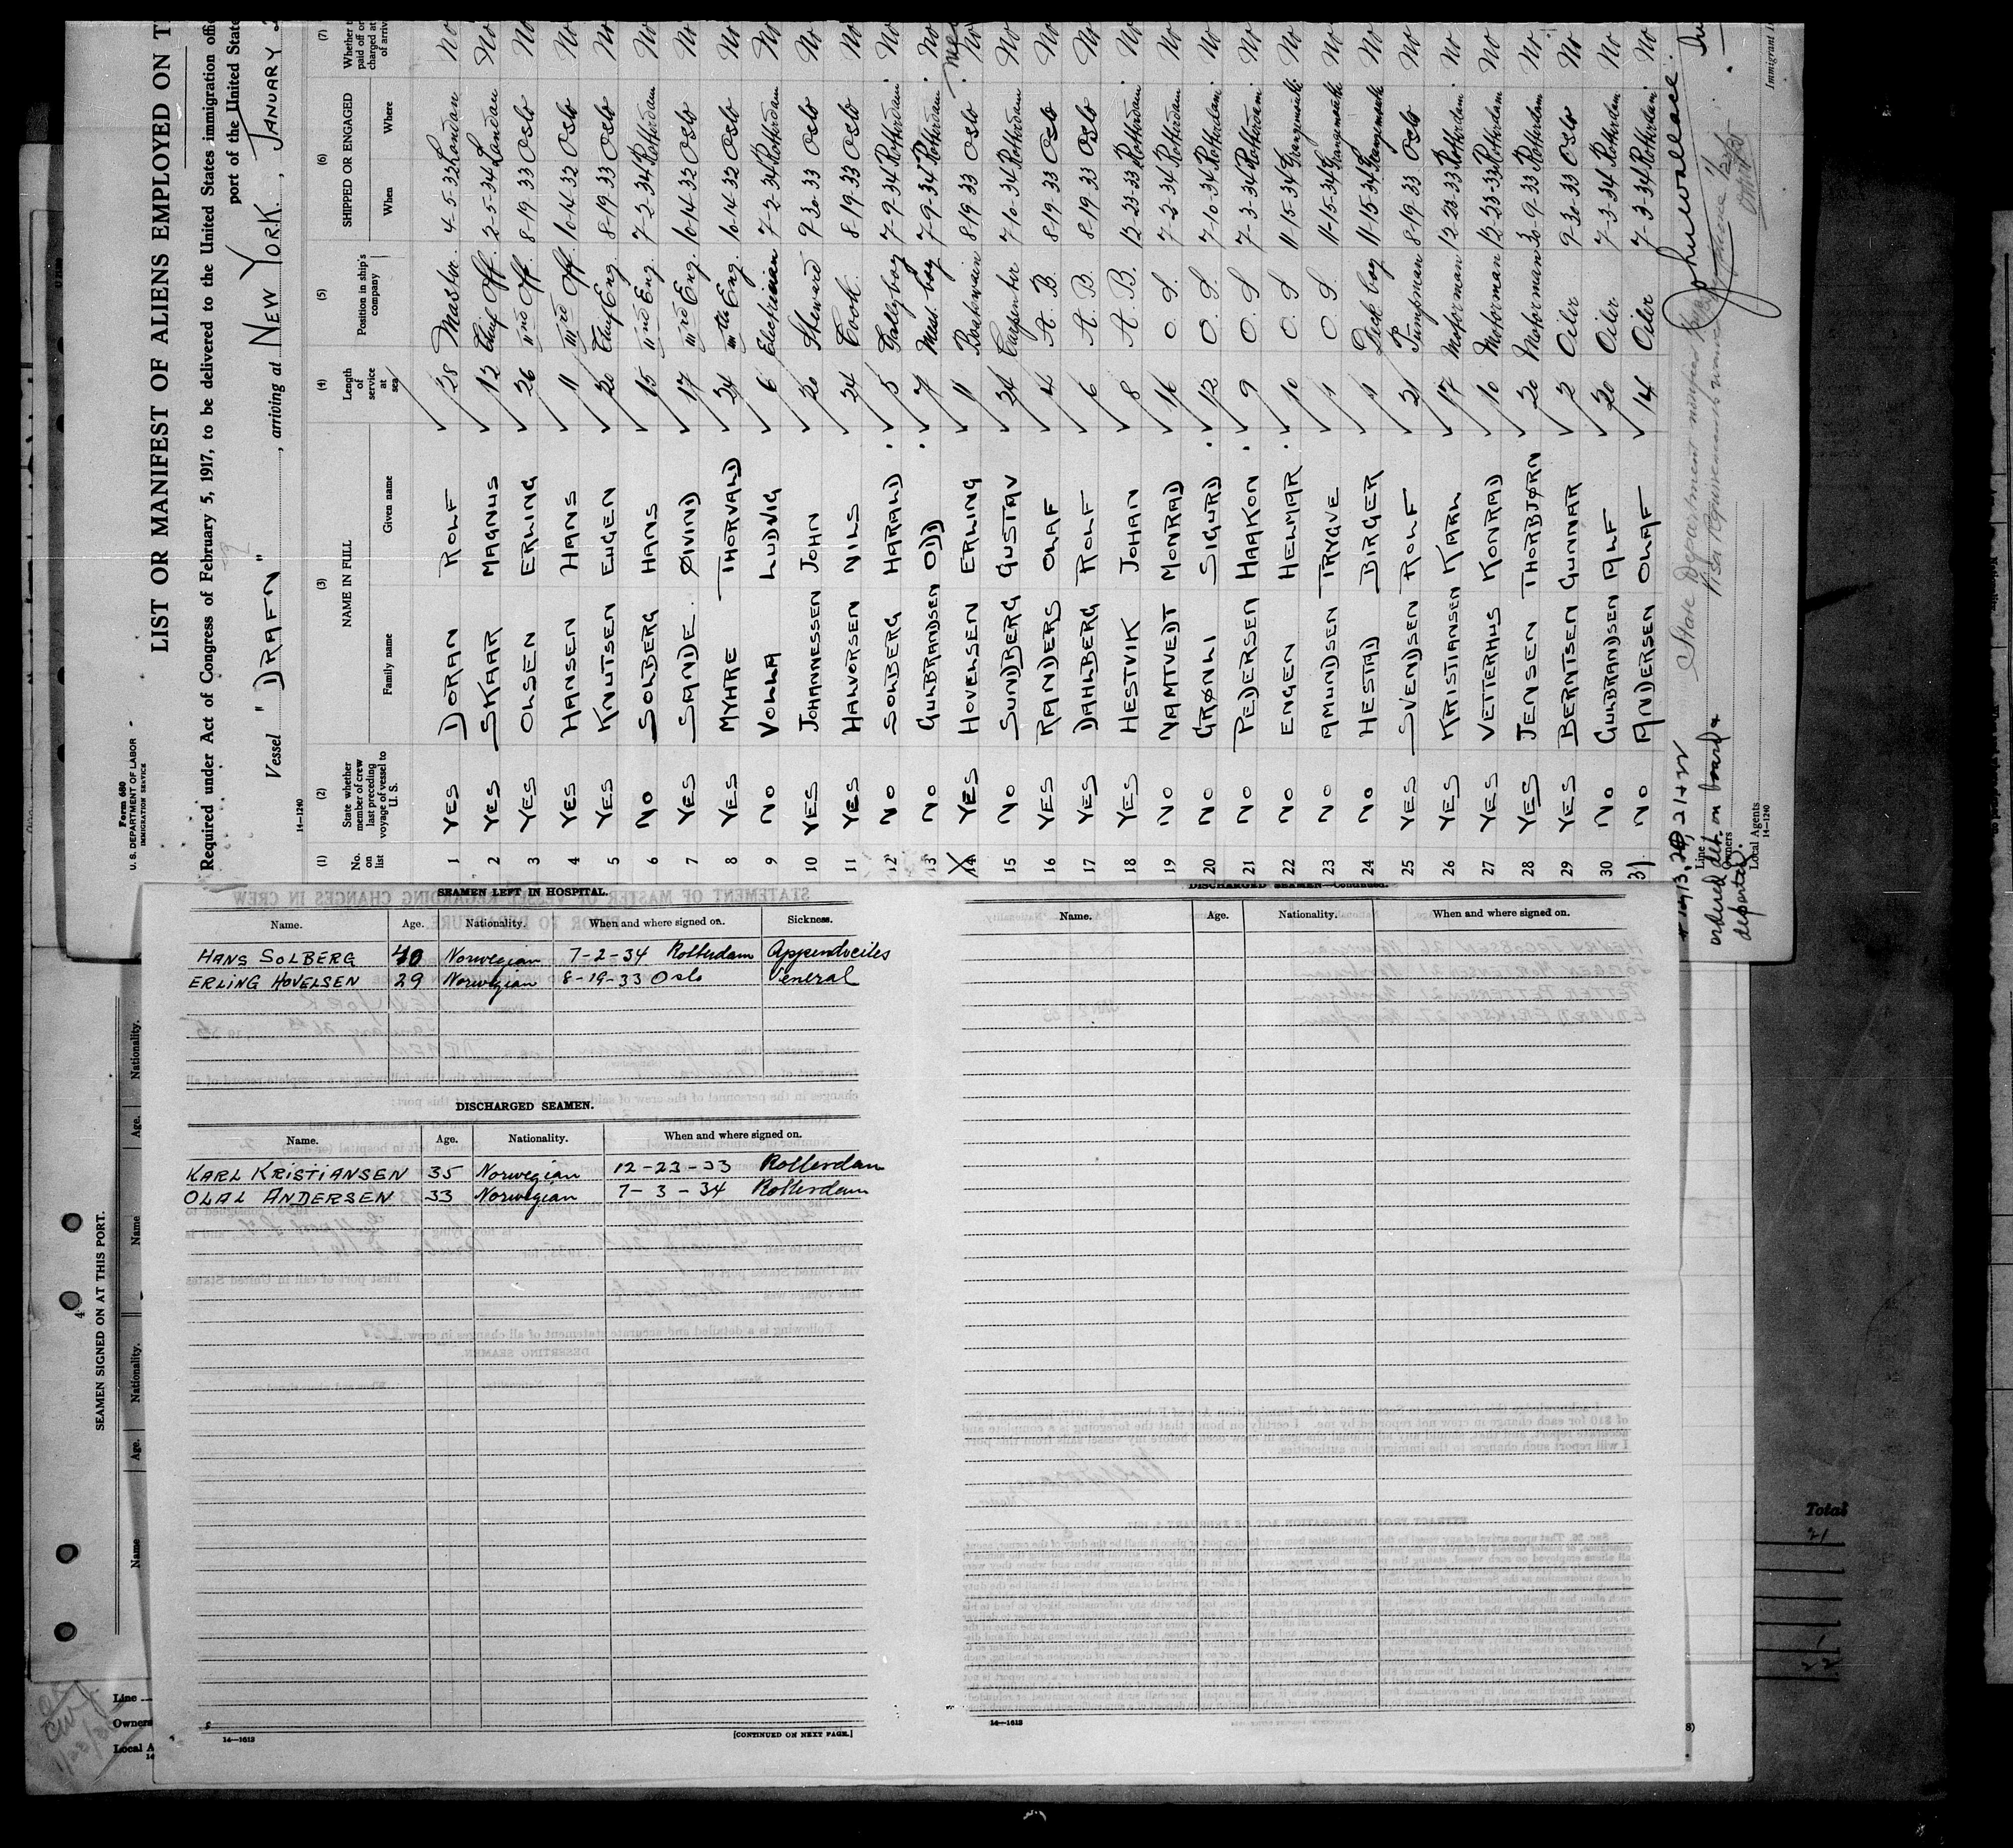 Form 680
U. S. DEPARTMENT OF LABOR
IMMIGRATION SERVICE
LIST OR MANIFEST OF ALIENS EMPLOYED ON T
Required under Act of Congress of February 5, 1917, to be delivered to the United States immigration offi
port of the United State
Vessel "DRAFN", arriving at NEW YORK, JANUARY
14-1240
(1) (2) (3) (4) (5) (6) (7)
No. on list State whether member of crew last preceding voyage of vessel to U. S. NAME IN FULL Family name Given name Length of service at sea Position in ship's company SHIPPED OR ENGAGED When Where Whether t paid off or charged at of arriva
1 YES DORAN ROLF 28 Master 4-5-32 London No
2 YES SKAAR MAGNUS 12 Chief Off. 2-5-34 London No
3 YES OLSEN ERLING 26 IInd Off. 8-19-33 Oslo No
4 YES HANSEN HANS 11 IIIrd Off. 10-14-32 Oslo No
5 YES KNUTSEN EUGEN 20 Chief Eng. 8-19-33 Oslo No
6 NO SOLBERG HANS 15 IInd Eng. 7-2-34 Rotterdam No
7 YES SANDE ØIVIND 17 IIIrd Eng. 10-14-32 Oslo No
8 YES MYHRE THORVALD 24 IIIth Eng. 10-14-32 Oslo No
9 NO VOLLA LUDVIG 6 Electrician 7-2-34 Rotterdam No
10 YES JOHANNESSEN JOHN 20 Steward 9-30-33 Oslo No
11 YES HALVORSEN NILS 24 Cook 8-19-33 Oslo No
12 NO SOLBERG HARALD 5 Galleyboy 7-9-34 Rotterdam No
13 NO GULBRANDSEN ODD 7 Mess-boy 7-9-34 Rotterdam No
14 YES HOVELSEN ERLING 11 Boatswain 8-19-33 Oslo No
15 NO SUNDBERG GUSTAV 24 Carpenter 7-10-34 Rotterdam No
16 YES RANDERS OLAF 4 A. B. 8-19-33 Oslo No
17 YES DAHLBERG ROLF 6 A. B. 8-19-33 Oslo No
18 YES HESTVIK JOHAN 8 A. B. 12-23-33 Rotterdam No
19 NO NAMTVEDT MONRAD 16 O. S. 7-2-34 Rotterdam No
20 NO GRØNLI SIGURD 12 O. S. 7-10-34 Rotterdam No
21 NO PEDERSEN HAAKON 9 O. S. 7-3-34 Rotterdam No
22 NO ENGEN HELMAR 10 O. S. 11-15-34 Grangemouth No
23 NO AMUNDSEN TRYGVE 4 O. S. 11-15-34 Grangemouth No
24 NO HESTAD BIRGER 4 Deck boy 11-15-34 Grangemouth No
25 YES SVENDSEN ROLF 21 Pumpman 8-19-33 Oslo No
26 YES KRISTIANSEN KARL 17 Motorman 12-23-33 Rotterdam No
27 YES VETTERHUS KONRAD 10 Motorman 12-23-33 Rotterdam No
28 YES JENSEN THORBJØRN 20 Motorman 30-9-33 Rotterdam No
29 YES BERNTSEN GUNNAR 2 Oiler 9-30-33 Oslo No
30 NO GULBRANDSEN ALF 20 Oiler 7-3-34 Rotterdam No
31 NO ANDERSEN OLAF 14 Oiler 7-3-34 Rotterdam No
State Department
Visa Requirements
John Wallace
Line
Owners
Local Agents
14-1240
ordered det. on board &
departed.
Immigrant I
SEAMEN LEFT IN HOSPITAL.
Name. Age. Nationality. When and where signed on. Sickness.
HANS SOLBERG 40 Norwegian 7-2-34 Rotterdam Appendicites
ERLING HOVELSEN 29 Norwegian 8-19-33 Oslo Veneral
DISCHARGED SEAMEN.
Name. Age. Nationality. When and where signed on.
KARL KRISTIANSEN 35 Norwegian 12-23-33 Rotterdam
OLAL ANDERSEN 33 Norwegian 7-3-34 Rotterdam
14—1613
[CONTINUED ON NEXT PAGE.]
DISCHARGED SEAMEN—Continued.
Name. Age. Nationality. When and where signed on.
14—1613
SEAMEN SIGNED ON AT THIS PORT.
Name Age. Nationality. Name Age. Nationality.
4
Line
Owners
Local A
14
Total
21